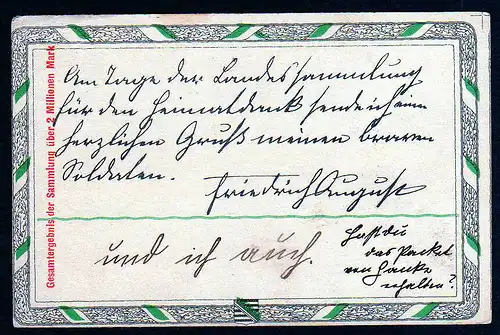 Gesamtergebnis der Sammlung über 2 Millionen Mark
Am Tage der Landessammlung
für den Heimatdank sende ich einen
herzlichen Gruß meinen braven
Soldaten.
Friedrich August
und ich auch.
Hast du
das Packet
von Hanke
erhalten?